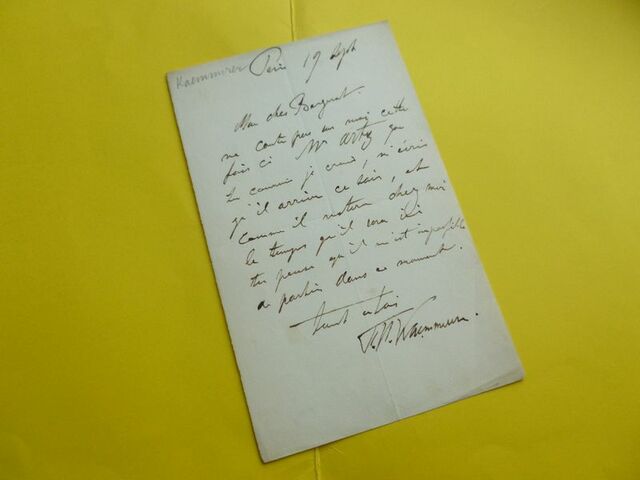 Kaemmerer
Paris 19 Sept
Mon cher Bargnet.
ne compte pas sur moi cette
fois ci Mr Artz que
tu connais je crois, m'écris
qu'il arrive ce soir, et
comme il restera chez moi
le temps qu'il sera ici
tu pense qu'il m'est impossible
de partir dans ce moment.
tout à toi
F.H. Kaemmerer.